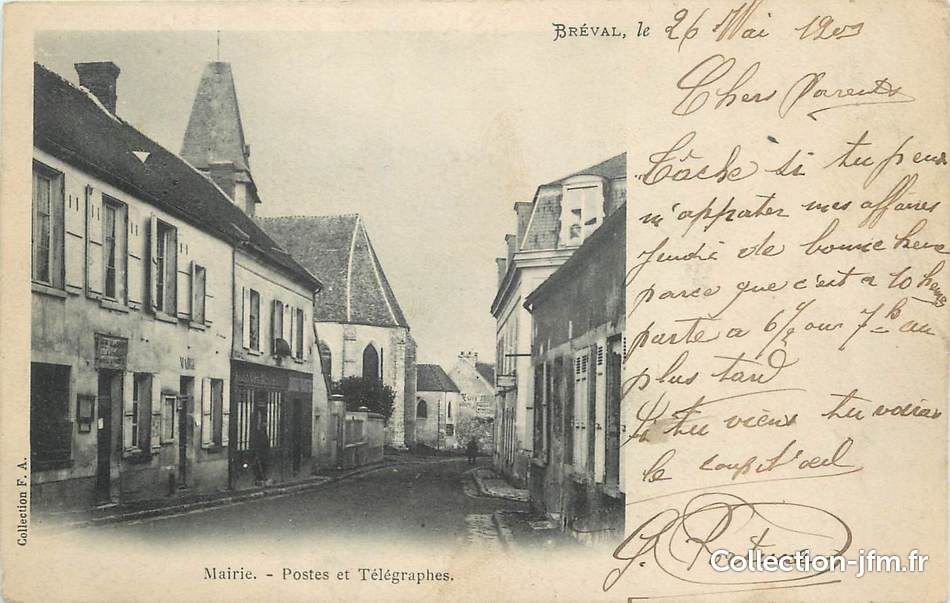 BRÉVAL, le 26 Mai 1903
Chers Parents
Tâche si tu peux
m'apporter mes affaires
Jeudi de bonne heure
parce que c'est a 10 heures
parte a 6½ ou 7h au
plus tard
Si tu viens tu voiras
le coup d'œil
G.
MAIRIE
Collection F. A.
Mairie. - Postes et Télégraphes.
Collection-jfm.fr